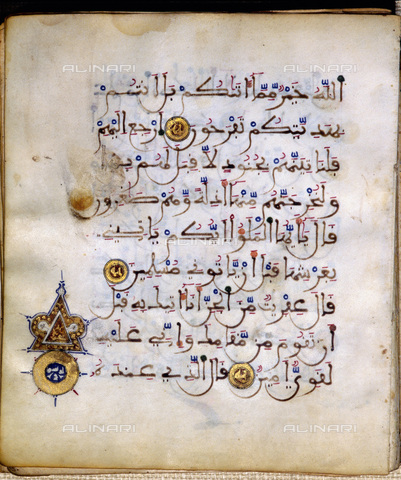 ALINARI
ٱللَّهُ خَيْرٌ مِّمَّا ءَاتَىٰكُم بَلْ أَنتُم
بِهَدِيَّتِكُمْ تَفْرَحُونَ ٱرْجِعْ إِلَيْهِمْ
فَلَنَأْتِيَنَّهُم بِجُنُودٍ لَّا قِبَلَ لَهُم بِهَا
وَلَنُخْرِجَنَّهُم مِّنْهَا أَذِلَّةً وَهُمْ صَٰغِرُونَ
قَالَ يَٰأَيُّهَا ٱلْمَلَؤُا۟ أَيُّكُمْ يَأْتِينِي
بِعَرْشِهَا قَبْلَ أَن يَأْتُونِي مُسْلِمِينَ
قَالَ عِفْرِيتٌ مِّنَ ٱلْجِنِّ أَنَا ءَاتِيكَ بِهِ قَبْلَ
أَن تَقُومَ مِن مَّقَامِكَ وَإِنِّي عَلَيْهِ
لَقَوِيٌّ أَمِينٌ قَالَ ٱلَّذِي عِندَهُ
ALINARI